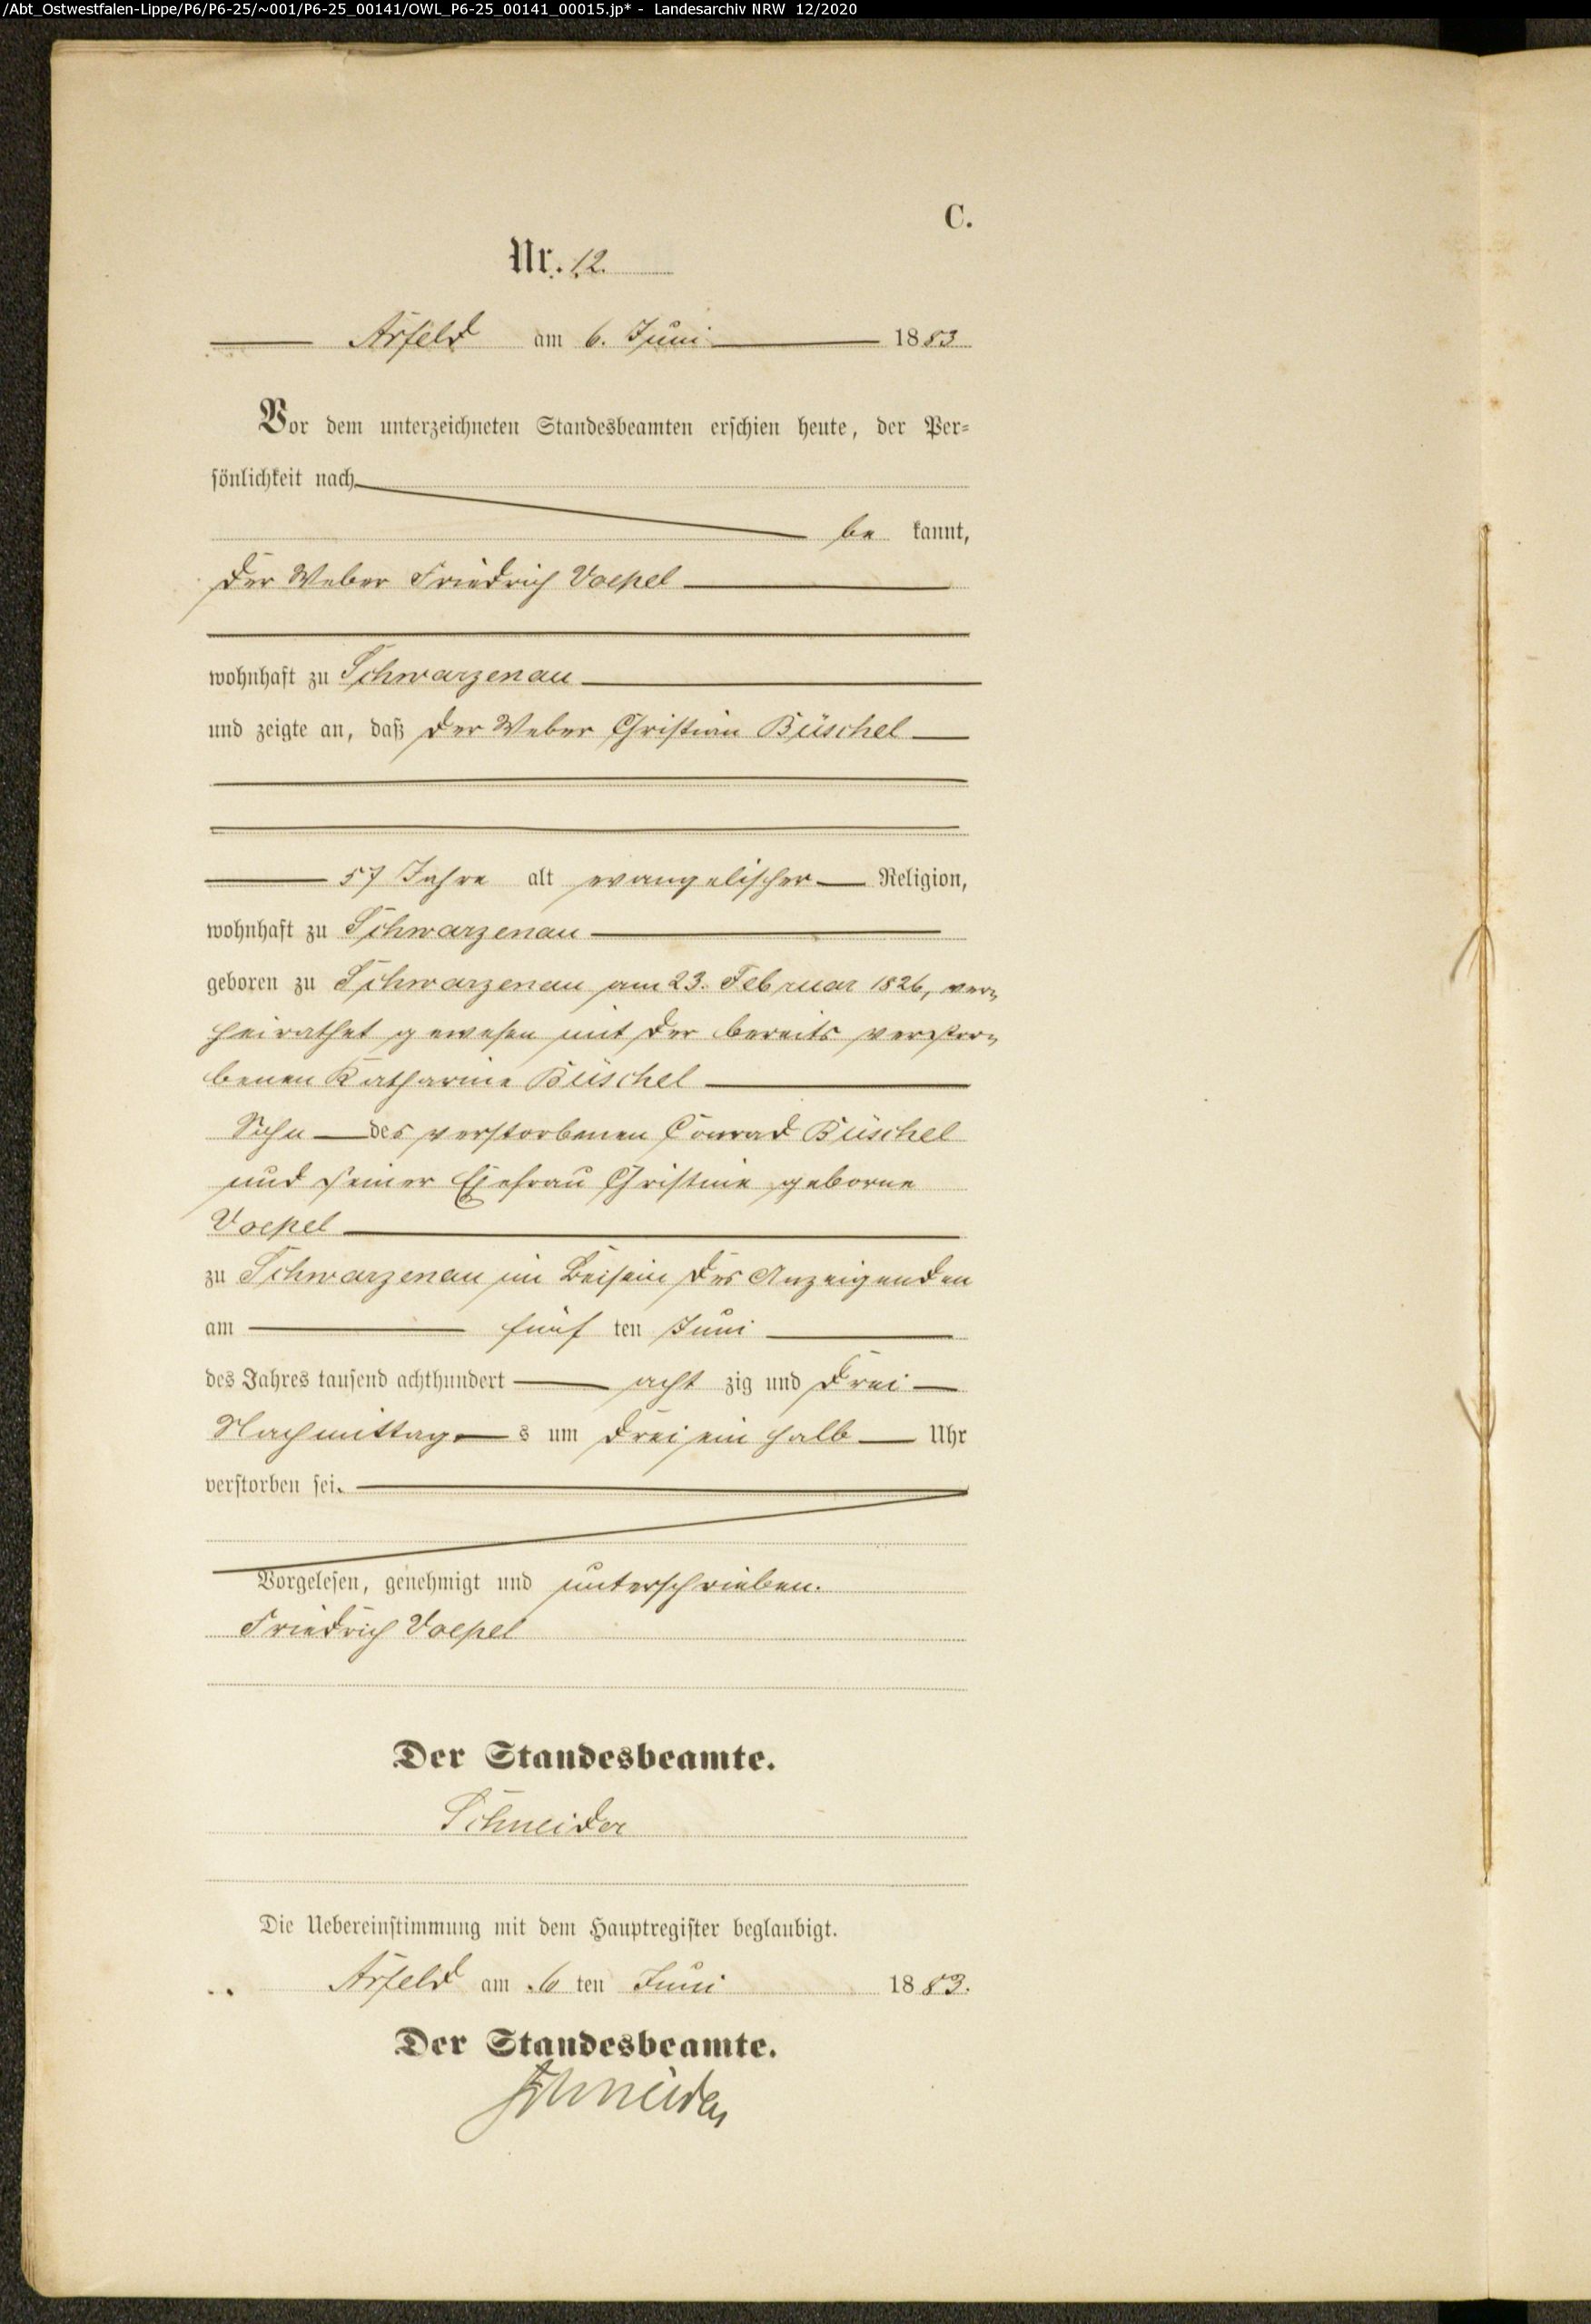 /Abt_Ostwestfalen-Lippe/P6/P6-25/~001/P6-25_00141/OWL_P6-25_00141_00015.jp* - Landesarchiv NRW 12/2020
C.
Nr. 12.
Arfeld am 6. Juni 1883
Vor dem unterzeichneten Standesbeamten erschien heute, der Per-
sönlichkeit nach
be kannt,
der Weber Friedrich Voepel
wohnhaft zu Schwarzenau
und zeigte an, daß der Weber Christian Büschel
57 Jahre alt evangelischer Religion,
wohnhaft zu Schwarzenau
geboren zu Schwarzenau am 23. Februar 1826, ver-
heirathet gewesen mit der bereits verstor-
benen Katharine Büschel
Sohn des verstorbenen Conrad Büschel
und seiner Ehefrau Christine geborne
Voepel
zu Schwarzenau im Beisein des Anzeigenden
am fünf ten Juni
des Jahres tausend achthundert acht zig und drei
Nachmittag s um drei ein halb Uhr
verstorben sei.
Vorgelesen, genehmigt und unterschrieben.
Friedrich Voepel
Der Standesbeamte.
Schneider
Die Uebereinstimmung mit dem Hauptregister beglaubigt.
Arfeld am 6 ten Juni 1883.
Der Standesbeamte.
Schneider